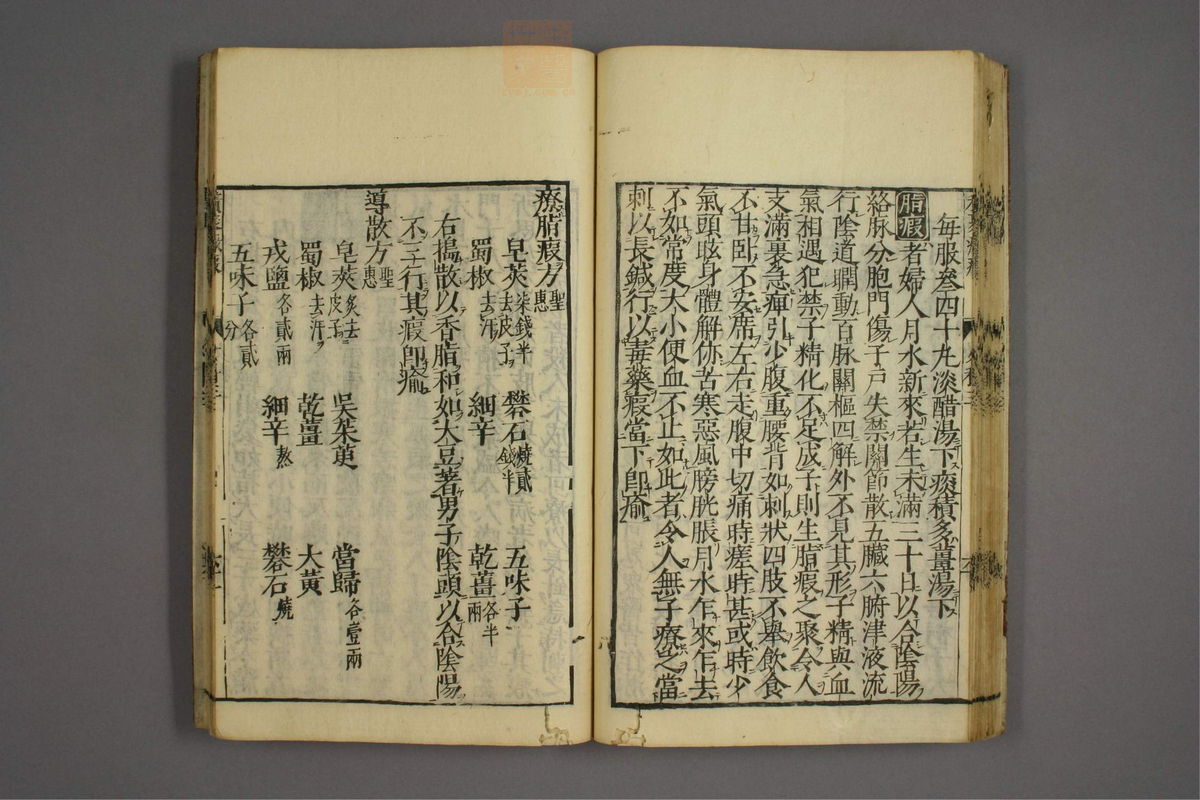 每服叄四十丸淡醋湯下痰積多薑湯下
脂瘕者婦人月水新來若生未滿三十日以合陰陽
絡脉分胞門傷子戸失禁關節散五臓六腑津液流
行陰道瞤動百脉關樞四解外不見其形子精與血
氣相遇犯禁子精化不足成子則生脂瘕之聚令人
支滿裏急痺引少腹重腰背如刺狀四肢不舉飲食
不甘卧不安席左右走腹中切痛時瘥時甚或時少
氣頭眩身體解㑊苦寒惡風膀胱脹月水乍來乍去
不如常度大小便血不止如此者令人無子療之當
刺以長鍼行以毒藥瘕當下即瘉
療脂瘕方聖惠
皂莢柒錢半去皮子 礬石燒貳錢半 五味子
蜀椒去汗 細辛 乾薑各半兩
右搗散以香脂和如大豆著男子陰頭以合陰陽
不三行其瘕即瘉
導散方聖惠
皂莢炙去皮子 吳茱萸 當歸各壹兩
蜀椒去汗 乾薑 大黃
戎鹽各貳兩 細辛熬 礬石燒
五味子各貳分